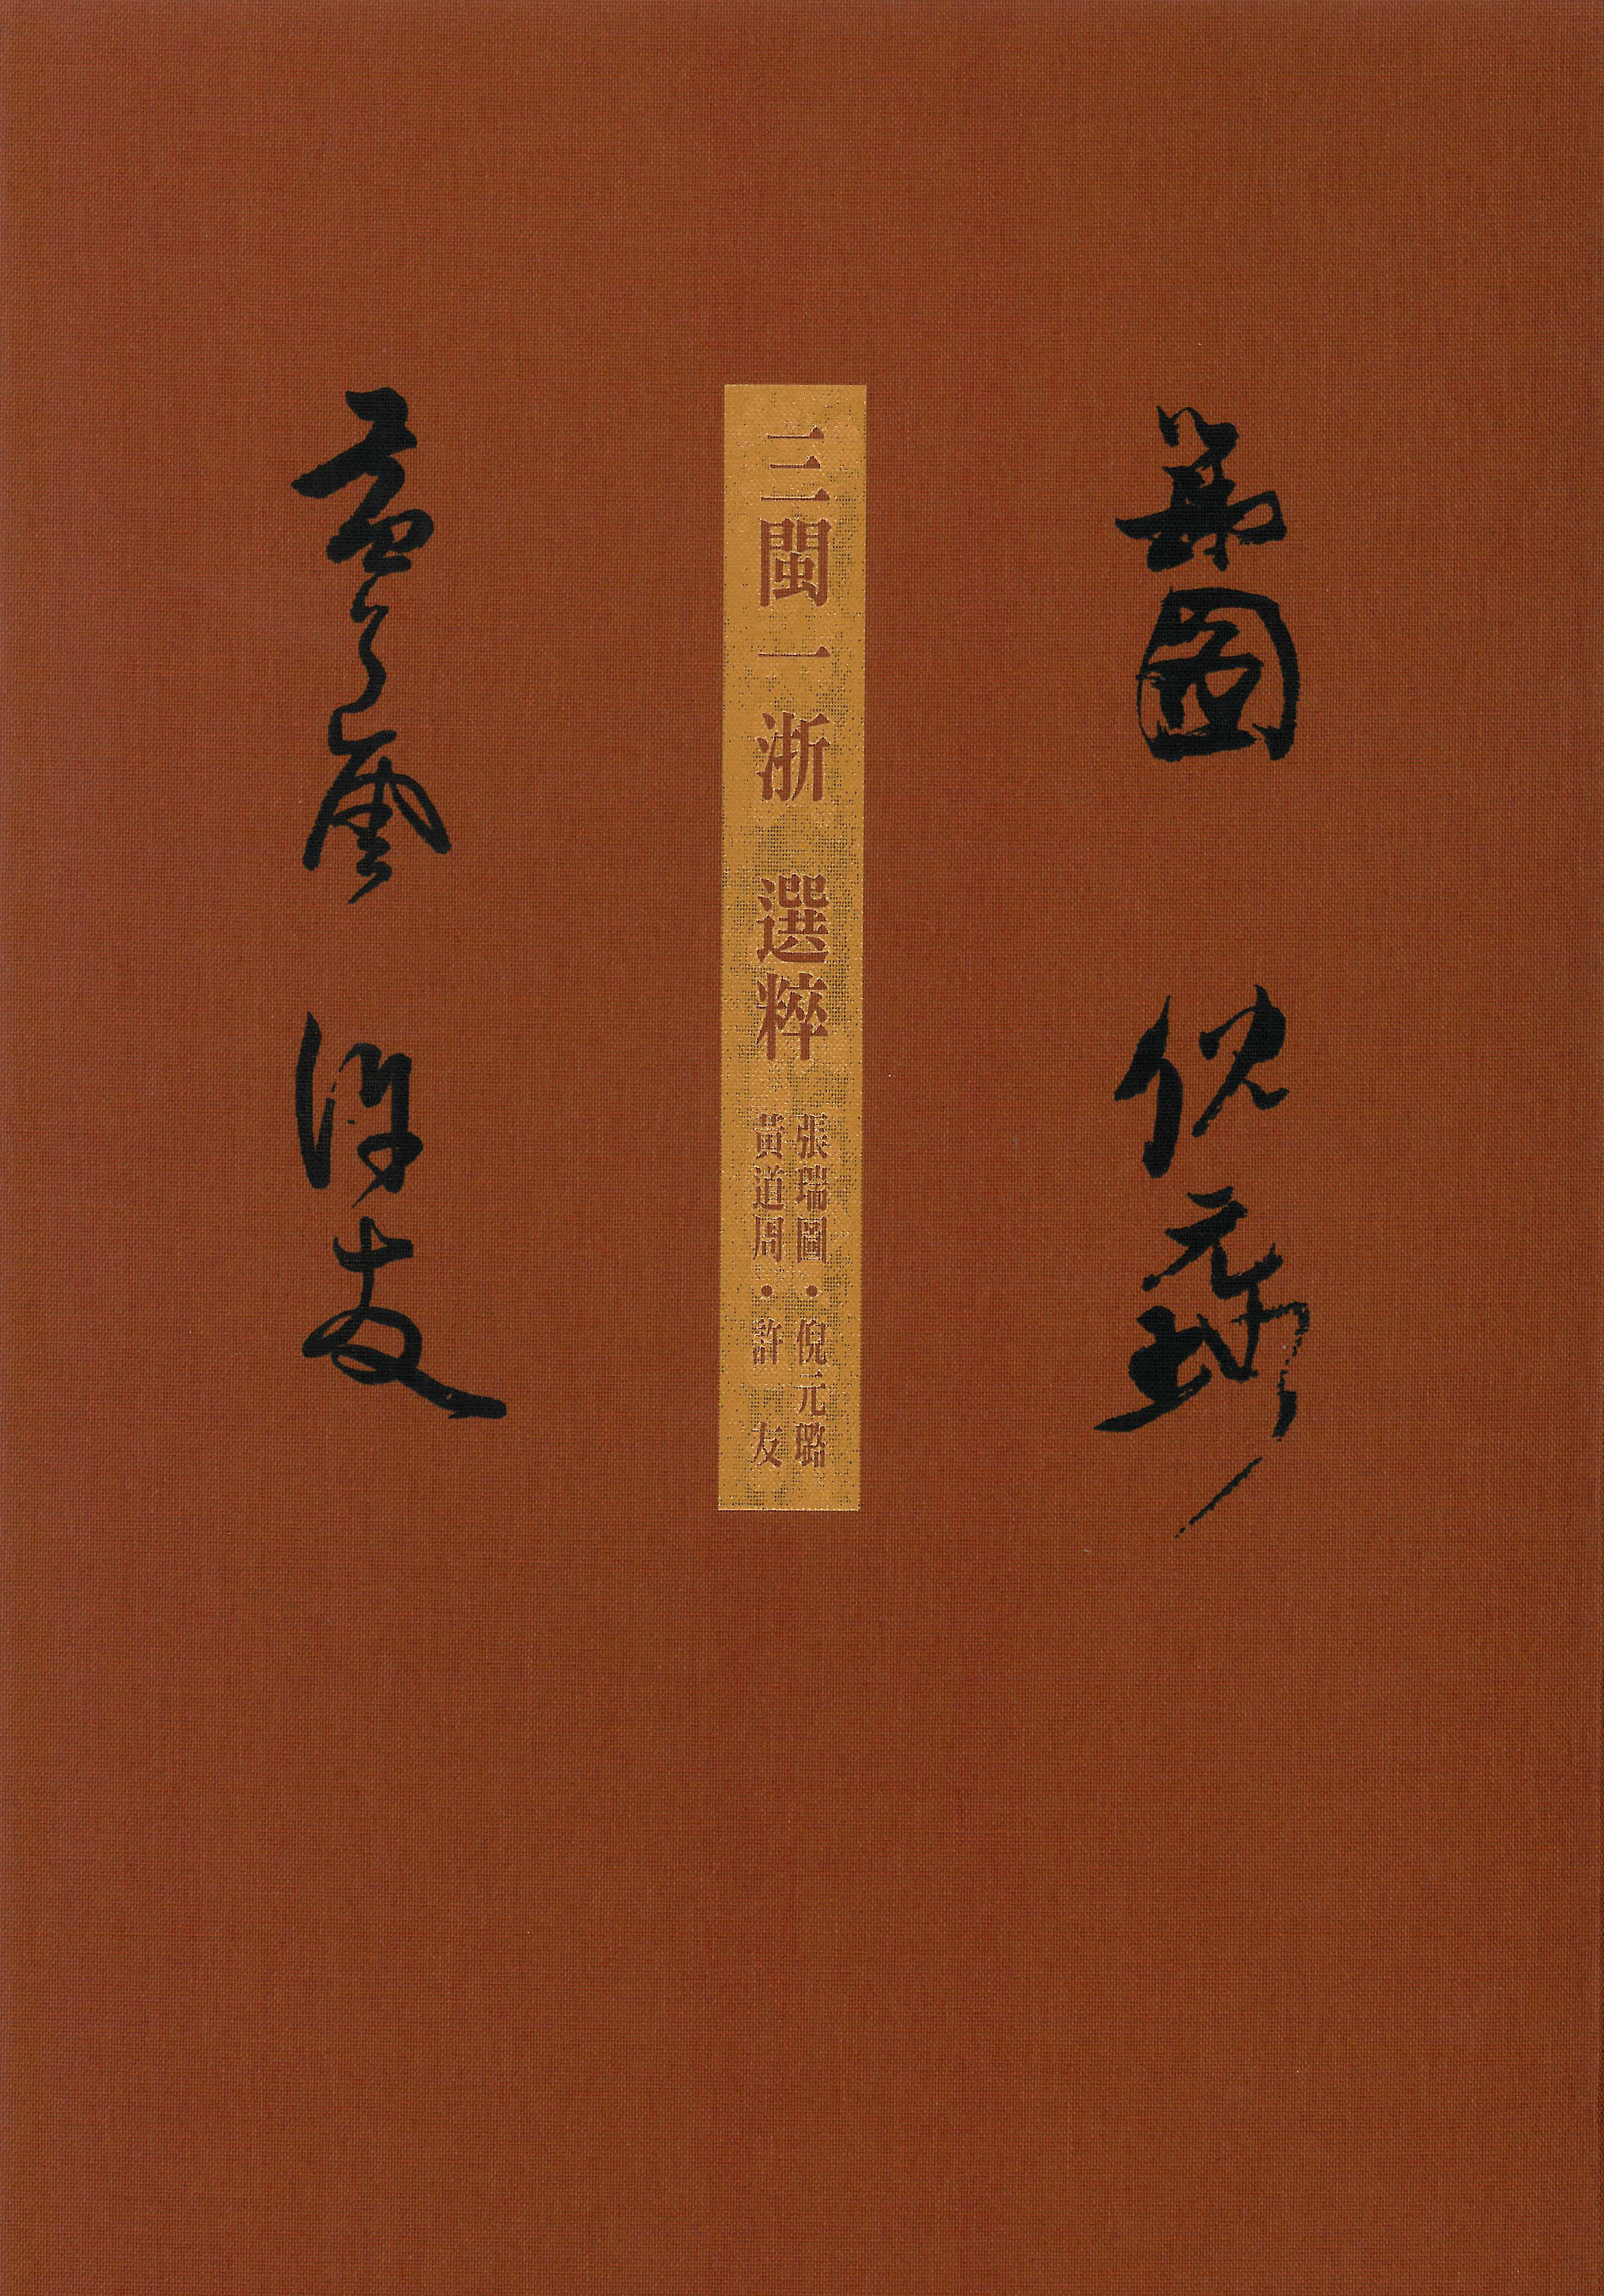 瑞圖 倪元璐
三閩一浙 選粹
張瑞圖・倪元璐
黃道周・許 友
黃道周 許友